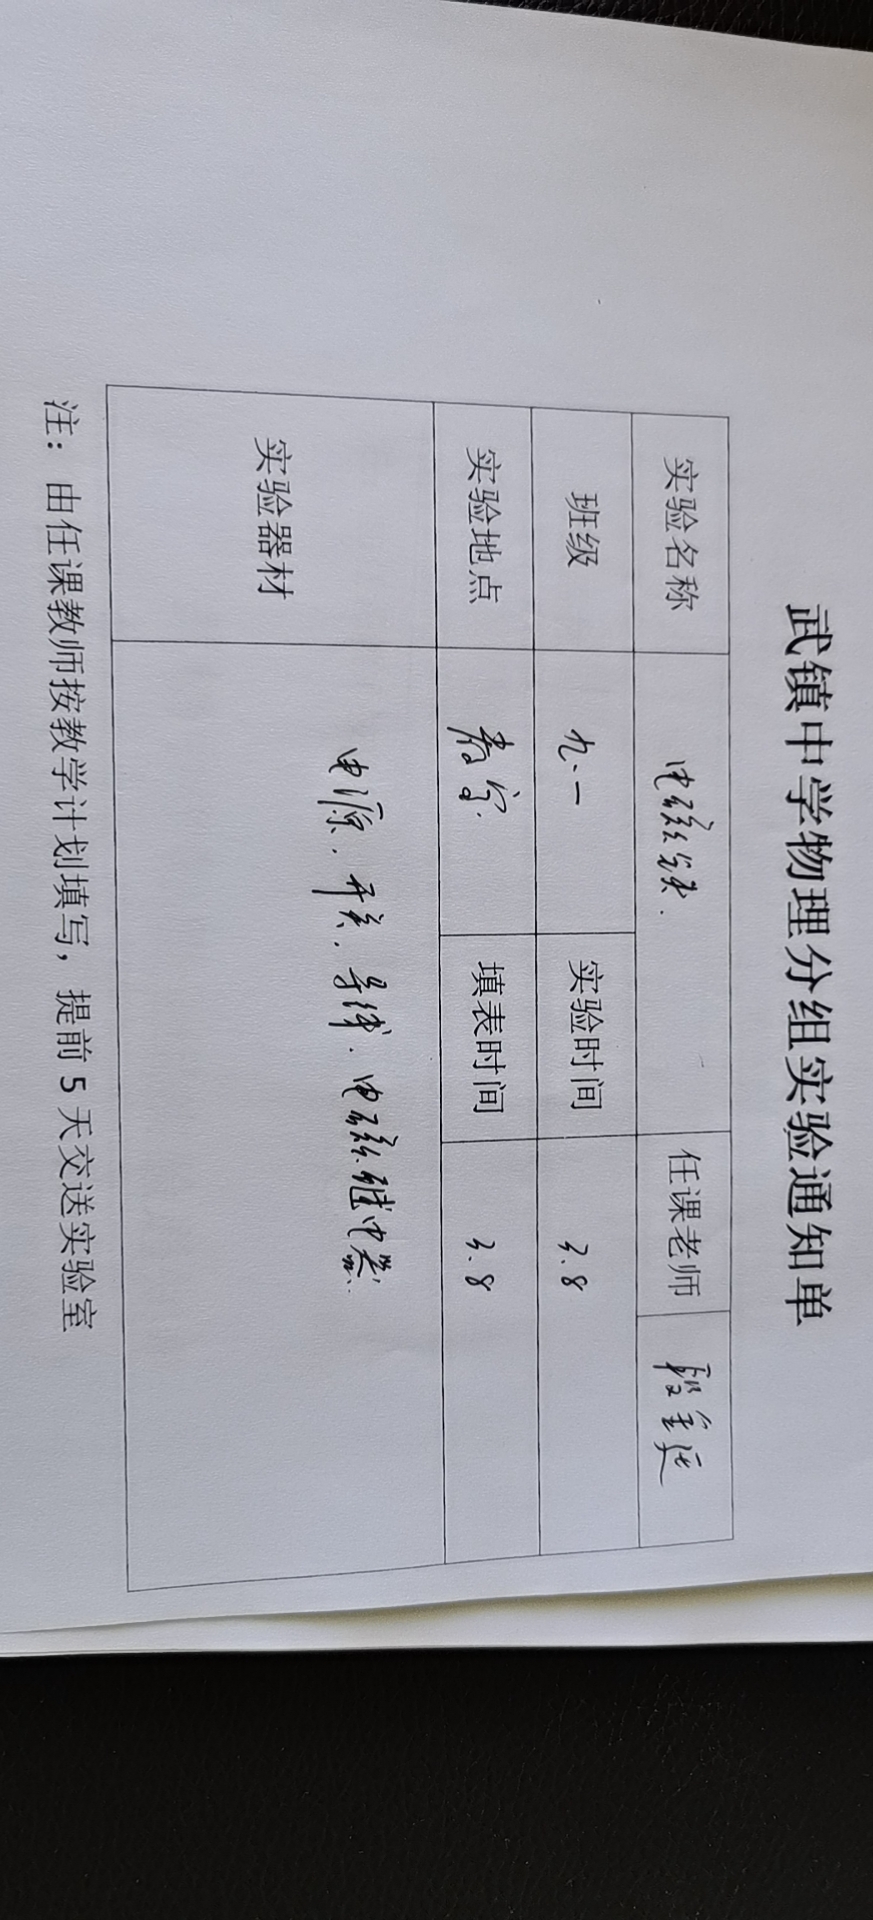 武镇中学物理分组实验通知单
实验名称 电磁铁. 任课老师
班级 九.一 实验时间 3.8
实验地点 教室. 填表时间 3.8
实验器材 电源.开关.导线.电磁继电器.
注：由任课教师按教学计划填写，提前 5 天交送实验室